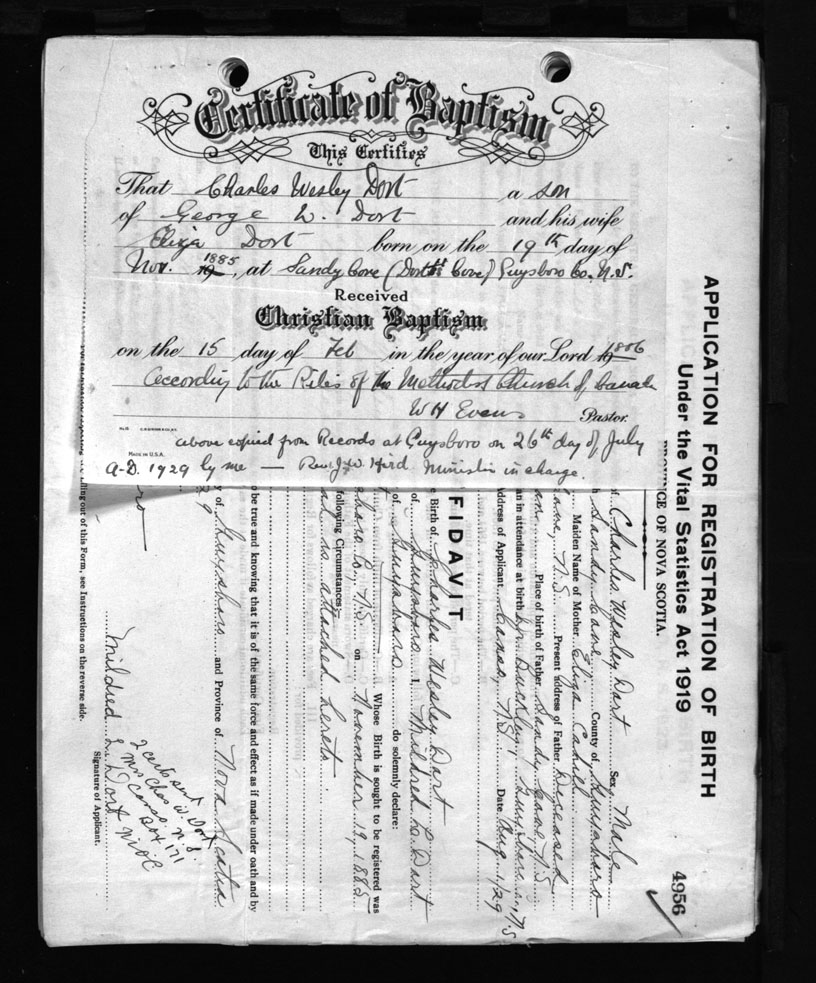 Certificate of Baptism
This Certifies
That Charles Wesley Dort a son
of George W. Dort and his wife
Eliza Dort born on the 19th day of
Nov. 1885, at Sandy Cove (Dort's Cove) Guysboro Co. N.S.
Received
Christian Baptism
on the 15 day of Feb in the year of our Lord 1886
According to the Rites of the Methodist Church of Canada
W H Evans Pastor.
MADE IN U.S.A.
above copied from Records at Guysboro on 26th day of July
A.D. 1929 by me — Rev. J. W. Hird Minister in charge.
APPLICATION FOR REGISTRATION OF BIRTH
Under the Vital Statistics Act 1919
4956
PROVINCE OF NOVA SCOTIA.
Charles Wesley Dort Sex Male
Sandy Cove County of Guysboro
Maiden Name of Mother Eliza Cahill
N.S. Present address of Father Deceased
Place of birth of Father Sandy Cove, N.S.
an in attendance at birth Dr. Buckley, Guysboro, N.S.
Address of Applicant Canso, N.S. Date Aug. 1/29
FIDAVIT
e Birth of Charles Wesley Dort
of Guysboro I, Mildred L. Dort
of Guysboro do solemnly declare:
Whose Birth is sought to be registered was
Co., N.S. on November 19, 1885
following Circumstances:
attached hereto.
o be true and knowing that it is of the same force and effect as if made under oath and by
y of Guysboro and Province of Nova Scotia.
29
Mildred L. Dort
Signature of Applicant.
lling out of this Form, see Instructions on the reverse side.
2 certs sent
Mrs Chas W. Dort
Canso N.S.
Box 171